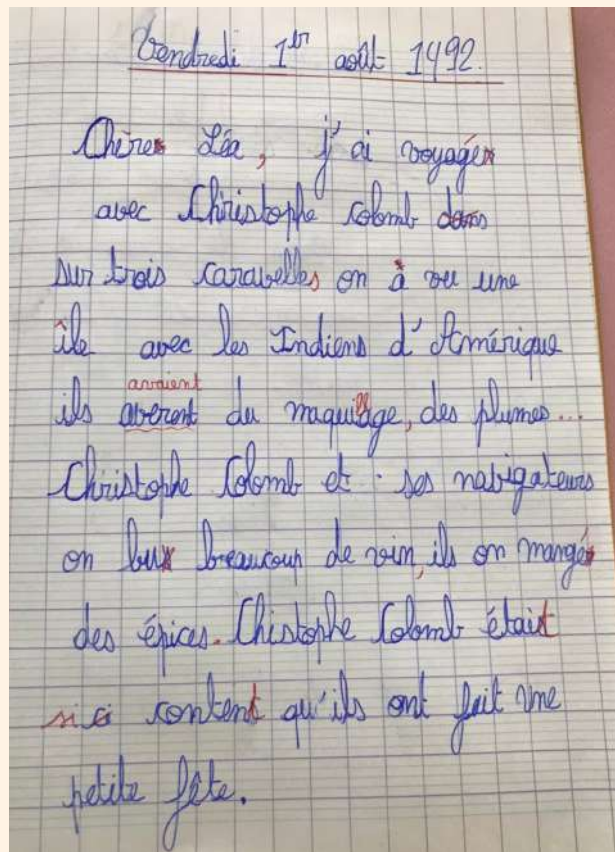 Vendredi 1er août 1492.
Chère Léa, j'ai voyagé
avec Christophe Colomb dans
sur trois caravelles on à vu une
île avec les Indiens d'Amérique
avaient
ils averent du maquillage, des plumes...
Christophe Colomb et ses nabigateurs
on bu beaucoup de vin, ils on mangé
des épices. Chistophe Colomb était
si ci content qu'ils ont fait une
petite fête.